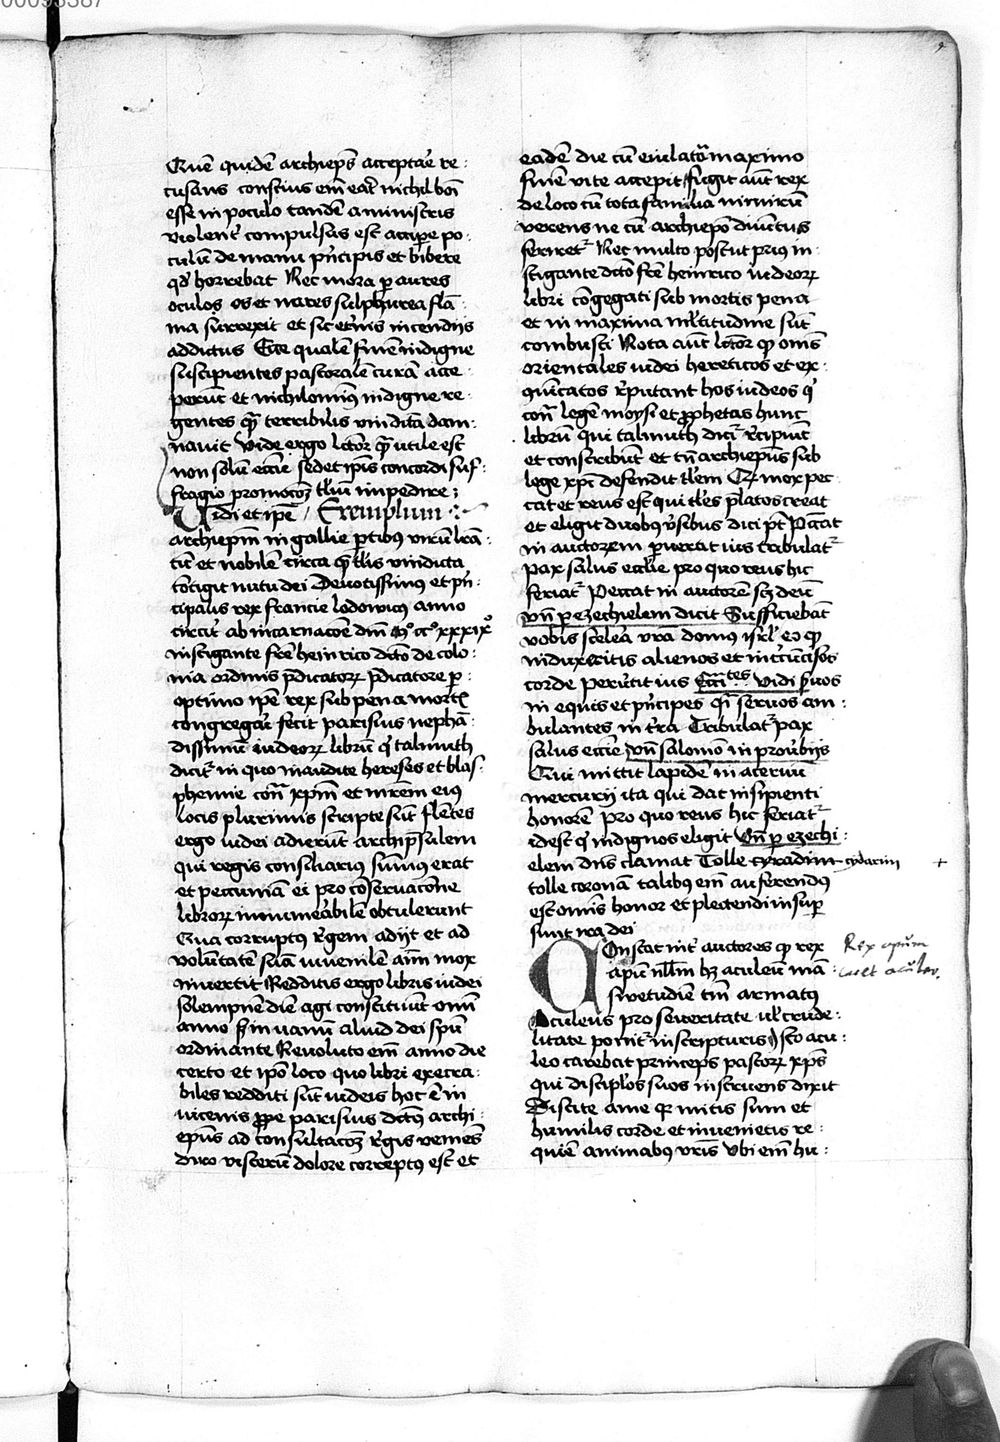 00093387
9
Quē quidē archiep̄s acceptar̄e re-
cusans conscius em̄ eāt nichil bōi
esse in poculo tandē a ministris
violent᷒ compulsus est accip̱e po-
culū de manu pͥncipis et bibere
qd̓ horrebat Nec mora ꝑ aures
oculos os et nares sulphurea flā-
ma surrexit et sic et᷒nis incendijs
addictus Ecce qualē finē indigne
suscipientes pastoralē curā acce-
perūt et nichilomin᷒ indigne re-
gentes qͣ terribilis vindicta dam-
nauit Vide ergo lc̄or qͣ utile est
non solū eccīe sed et ip̄is concordi suf-
fragio promocōꝫ tliū impedire
Vidi et ip̄e Exemplum
archiep̄m in gallie ꝑtibus virū lrā-
tū et nobilē circa quē tlīs vindicta
cōtigit nutu dei Deuotissimus et pͥn-
cipalis rex francie lodowicus anno
circit᷒ ab incarnacōe dn̄i Mº ccº xxxixº
instigante frē heinrico dc̄o de colo-
nia ordinis p̄dicatorꝝ p̄dicatore p-
optimo ip̄e rex sub pena mortꝭ
congregaī fecit parisius nephā-
dissimū iudeorꝝ librū qͥ talmuth
dicit᷒ in quo inaudite hereses et blas-
phemie cont̄ xp̄m et mr̄em ei᷒
locis plurimis scripte sūt flētes
ergo iudei adierūt archip̄sulem
qui regis consiliarius sūm᷒ erat
et peccuniā ei pro cōseruacōne
librorꝝ innumeabilē obtulerunt
Qua corrupt᷒ r̓gem adijt et ad
volūtatē suā iuuenilē aīm mox
inuertit Redditis ergo libris iudei
solempnē diē agi constituūt om̄i
anno sꝫ in uanū aliud dei spū
ordinante Reuoluto em̄ anno die
certo et ip̄o loco quo libri execra-
biles redditi sūt iudeis hoc ē in
uicenis ꝓpe parisius dc̄us archi-
ep̄us ad consultacōꝫ r̓gis veniēs
diro viscerū dolore corrept᷒ est et
eadē die cū eiulatū maximo
finē vite accepit fugit aūt rex
de loco cū tota familia nimirū
verens ne cū archiep̄o diuinitus
feriret᷒ Nec multo post ut prius in-
stigante dc̄o frē heinrico iudeorꝝ
libri cōgregati sub mortis pena
et in maxima mltitudine sūt
combusti Nota aūt lc̄or ꝙ om̄s
orientales iudei hereticos et ex-
cūicatos r̓putant hos iudeos qͥ
cont̄ legē moysi et ꝓphetas hunc
librū qui talmuth dicit᷒ r̓cipiūt
et conscribūt et tn̄ archiep̄us sub
lege xp̄i defendit tlēm Qꝫ mox pec-
cat et reus est qui tlēs p̄latos creat
et eligit duobꝰ v̓sibus dici pt̄ Peccat
in auctorem ꝑuertit ius tribulat᷒
pax salus ecclīe pro quo reus hic
feriat᷒ Peccat in auctorē scꝫ deū
vn̄ ꝑ ezechielem dicit Sufficiebāt
vobis scelera vrā domus isrl̄ eo ꝙ
induxeritis alienos et incircūcisos
corde Peruertit ius Eccītes Vidi s̓uos
in equis et pͥncipes qͣi seruos am-
bulantes in t̓ra Tribulat᷒ pax
salus eccīe vn̄ salomō in prou̓bijs
Qui mittit lapidē in aceruū
mercurij ita qui dat insipienti
honorē pro quo reus hic feriat᷒
idest qͥ indignos eligit vn̄ ꝑ ezechi-
elem dn̄s clamat Tolle cyradim cydarim +
tolle coronā talibꝰ em̄ auferendꝰ
est om̄is honor et plectendi insuꝑ
sunt ira dei
Constat int᷒ auctores ꝙ rex Rex apum
apiū nll̄m hꝫ aculeū man-
suetudīe tm̄ armatꝰ
Aculeus pro seueritate ul̓ crude-
litate ponit᷒ in scripturis isto acu-
leo carebat princeps pastorꝝ xp̄s
qui discip̄los suos instruens dixit
Discite a me qꝛ mitis sum et
humilis corde et inuenietis re-
quiē animabꝰ vr̄is Vbi em̄ hu-